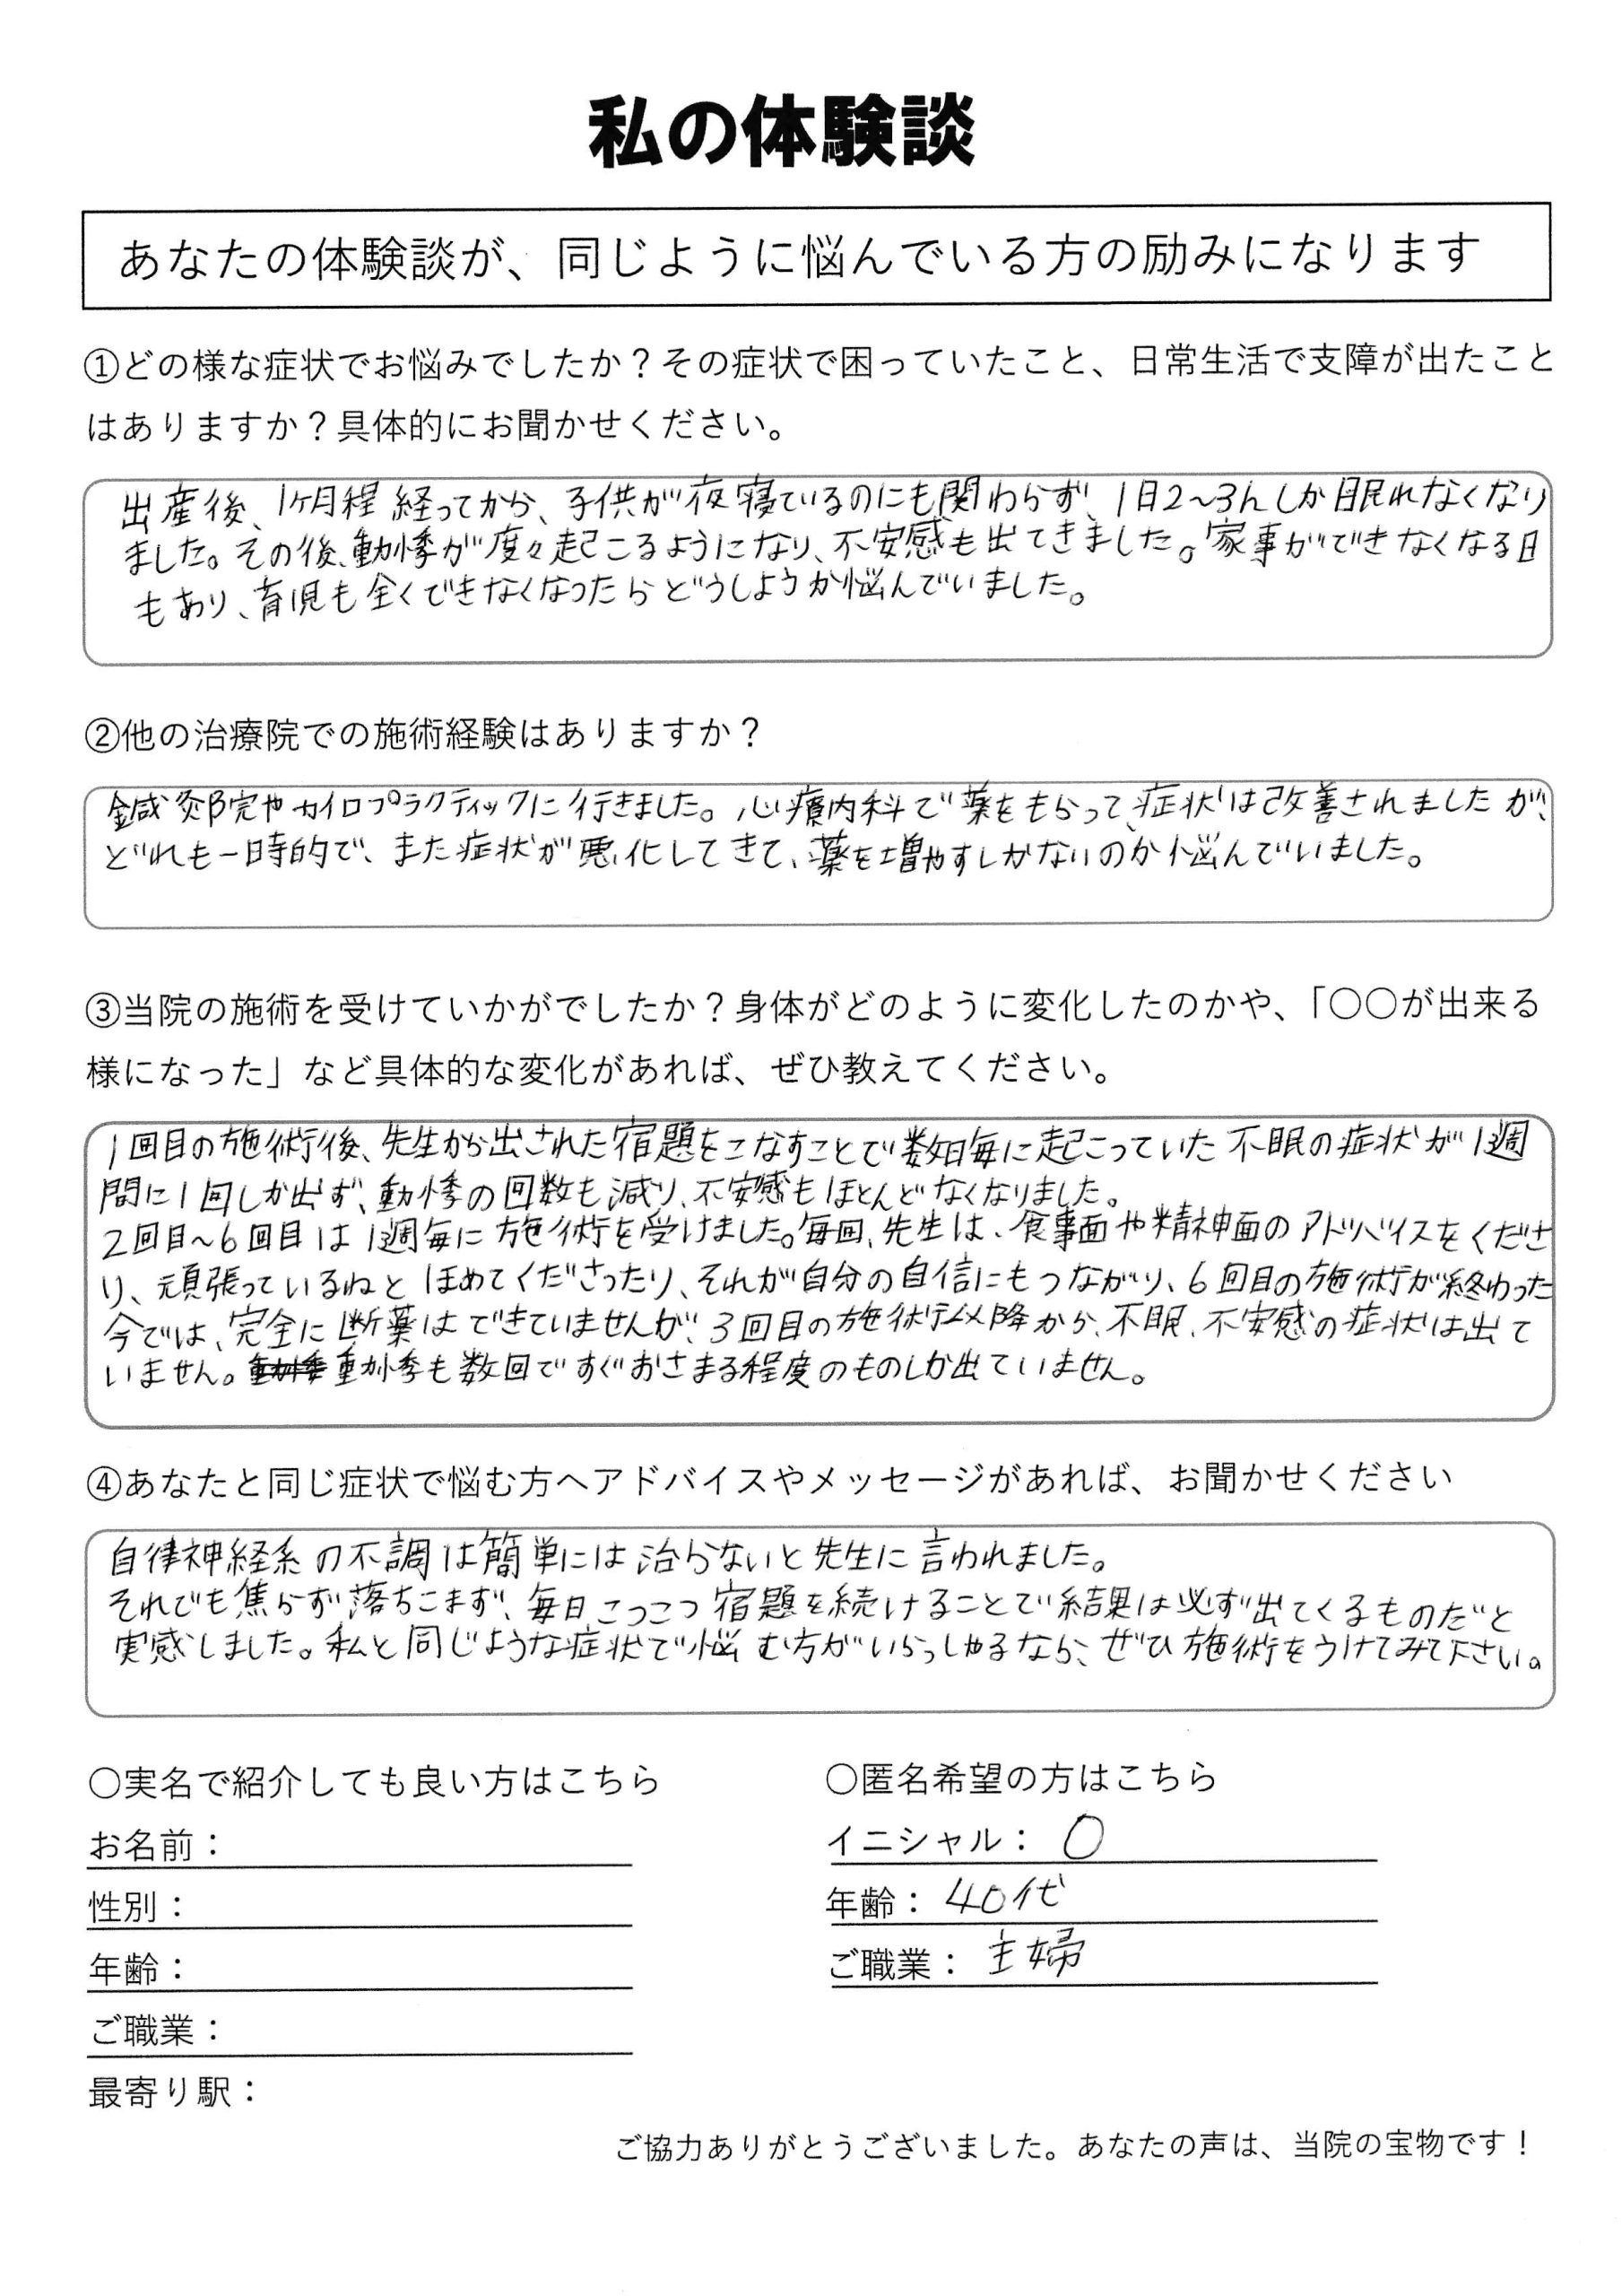 私の体験談
あなたの体験談が、同じように悩んでいる方の励みになります
①どの様な症状でお悩みでしたか？その症状で困っていたこと、日常生活で支障が出たこと
はありますか？具体的にお聞かせください。
出産後、1ヶ月程経ってから、子供が夜寝ているのにも関わらず、1日2～3hしか眠れなくなり
ました。その後、動悸が度々起こるようになり、不安感も出てきました。家事ができなくなる日
もあり、育児も全くできなくなったらどうしようか悩んでいました。
②他の治療院での施術経験はありますか？
鍼灸院やカイロプラクティックに行きました。心療内科で薬をもらって、症状は改善されましたが、
どれも一時的で、また症状が悪化してきて、薬を増やすしかないのか悩んでいました。
③当院の施術を受けていかがでしたか？身体がどのように変化したのかや、「〇〇が出来る
様になった」など具体的な変化があれば、ぜひ教えてください。
1回目の施術後、先生から出された宿題をこなすことで数日毎に起こっていた不眠の症状が1週
間に1回しか出ず、動悸の回数も減り、不安感もほとんどなくなりました。
2回目～6回目は1週毎に施術を受けました。毎回、先生は、食事面や精神面のアドバイスをくださ
り、頑張っているねとほめてくださったり、それが自分の自信にもつながり、6回目の施術が終わった
今では、完全に断薬はできていませんが、3回目の施術以降から、不眠、不安感の症状は出て
いません。動悸も数回ですぐおさまる程度のものしか出ていません。
④あなたと同じ症状で悩む方へアドバイスやメッセージがあれば、お聞かせください
自律神経系の不調は簡単には治らないと先生に言われました。
それでも焦らず落ちこまず、毎日こつこつ宿題を続けることで結果は必ず出てくるものだと
実感しました。私と同じような症状で悩む方がいらっしゃるなら、ぜひ施術をうけてみて下さい。
〇実名で紹介しても良い方はこちら
お名前：
性別：
年齢：
ご職業：
最寄り駅：
〇匿名希望の方はこちら
イニシャル： O
年齢： 40代
ご職業： 主婦
ご協力ありがとうございました。あなたの声は、当院の宝物です！